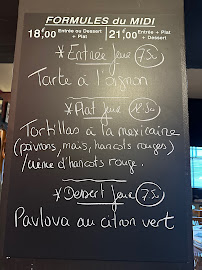 FORMULES du MIDI
18,00 Entrée ou Dessert + Plat
21,00 Entrée + Plat + Dessert
* Entrée seule 7,50
Tarte à l'oignon
* Plat seul
Tortillas à la mexicaine
(poivrons, maïs, haricots rouges)
/ crème d'haricots rouge.
* Dessert seul 7,50
Pavlova au citron vert